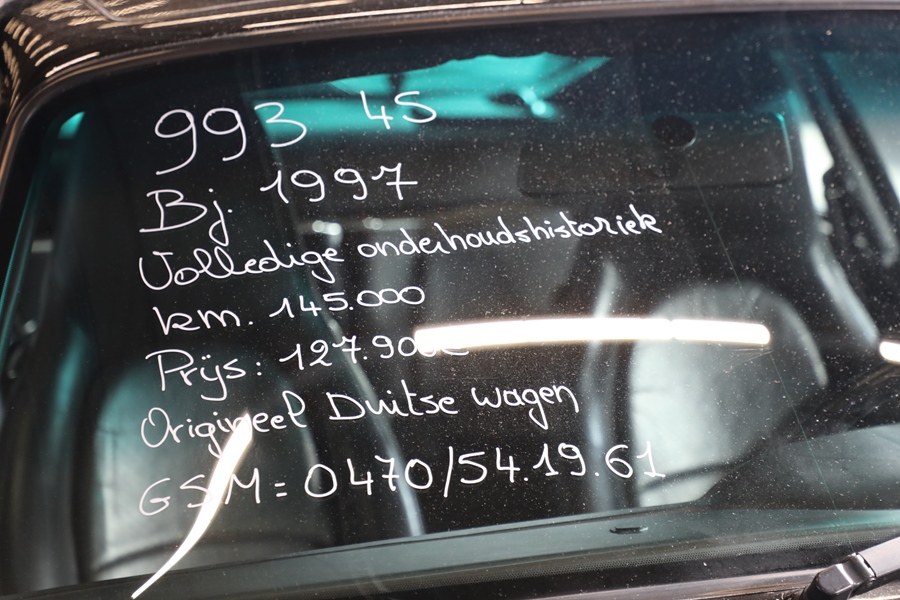 993 4S
Bj. 1997
Volledige onderhoudshistoriek
km. 145.000
Prijs:
Origineel Duitse wagen
GSM = 0470/54.19.61